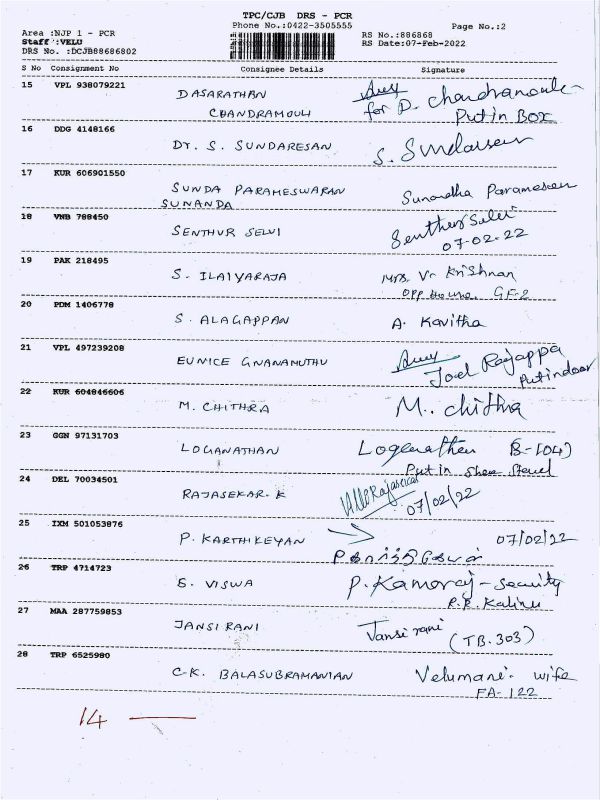 TPC/CJB DRS - PCR
Phone No.:0422-3505555
Page No.:2
Area :NJP 1 - PCR
RS No.:886868
Staff :VELU
RS Date:07-Feb-2022
DRS No. :DCJB88686802
S No Consignment No Consignee Details Signature
15 VPL 938079221 DASARATHAN
CHANDRAMOULI
for D. Chandramouli
Put in Box
16 DDG 4148166 Dr. S. SUNDARESAN S. Sundaresan
17 KUR 606901550 SUNDA PARAMESWARAN
SUNANDA
Sunandha Parameswaran
18 VNB 788450 SENTHUR SELVI Senthur Selvi
07-02-22
19 PAK 218495 S. ILAIYARAJA Mrs. V. Krishnan
opp House GF-2
20 PDM 1406778 S. ALAGAPPAN A. Kavitha
21 VPL 497239208 EUNICE GNANAMUTHU Joel Rajappa
Put indoor
22 KUR 604846606 M. CHITHRA M. chithra
23 GGN 97131703 LOGANATHAN Loganathan B-(04)
Put in Shoe
24 DEL 70034501 RAJASEKAR. K 07/02/22
25 IXM 501053876 P. KARTHIKEYAN 07/02/22
26 TRP 4714723 S. VISWA P. Kamaraj - Security
27 MAA 287759853 JANSI RANI Jansi rani
(TB.303)
28 TRP 6525980 C.K. BALASUBRAMANIAN Velumani. wife
FA-122
14